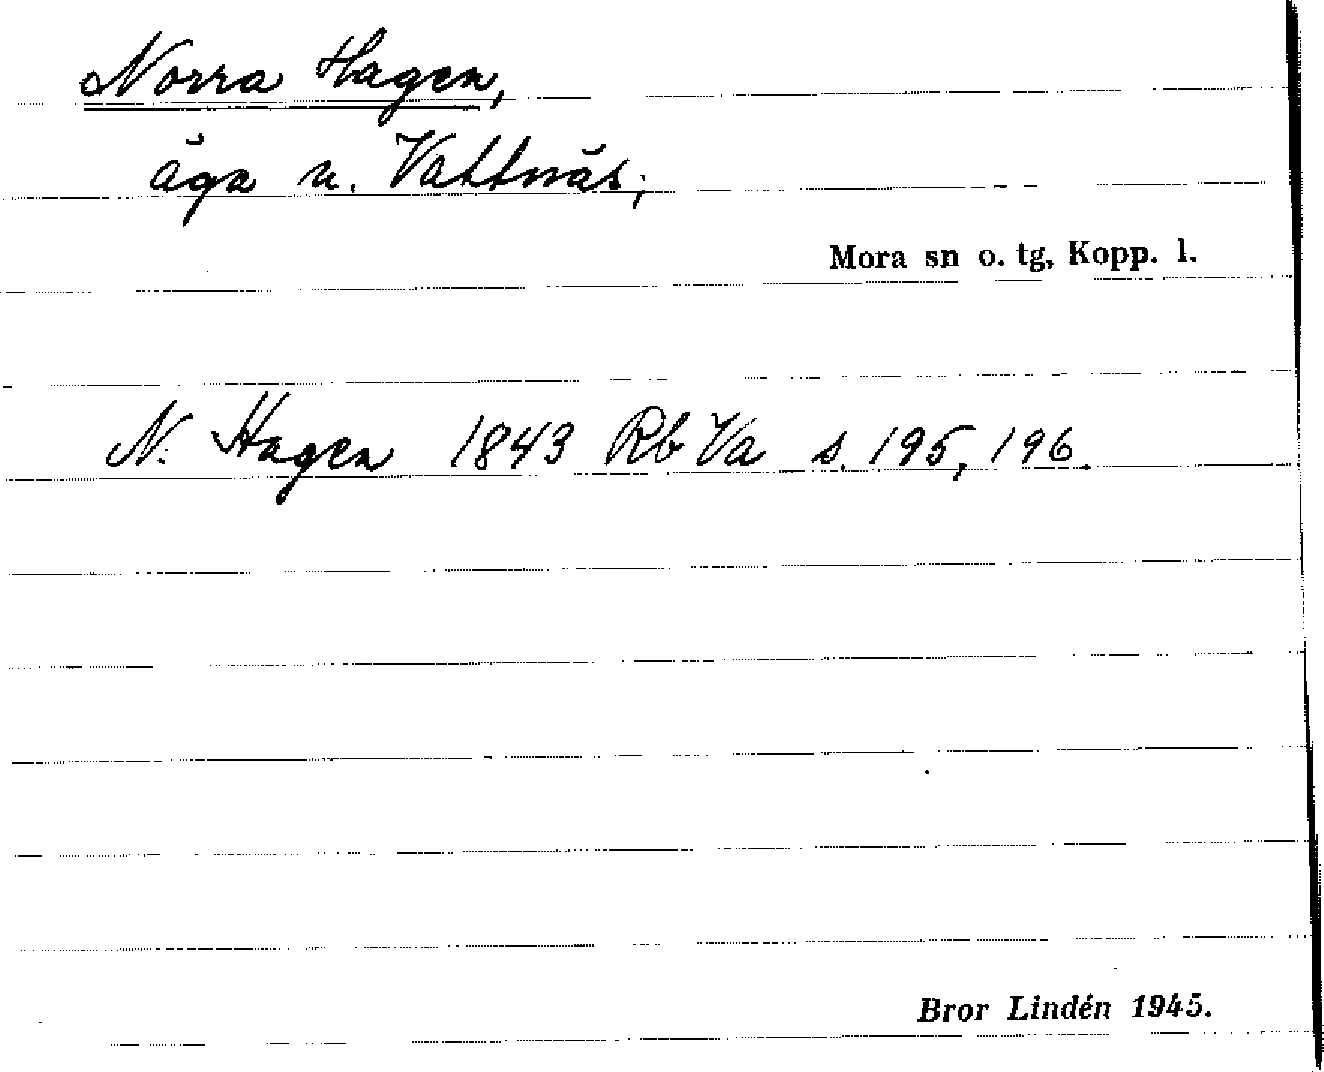 Norra Hagen,
äga u. Vattnäs;
Mora sn o. tg, Kopp. l.
N. Hagen 1843 Rb Va s. 195, 196.
Bror Lindén 1945.